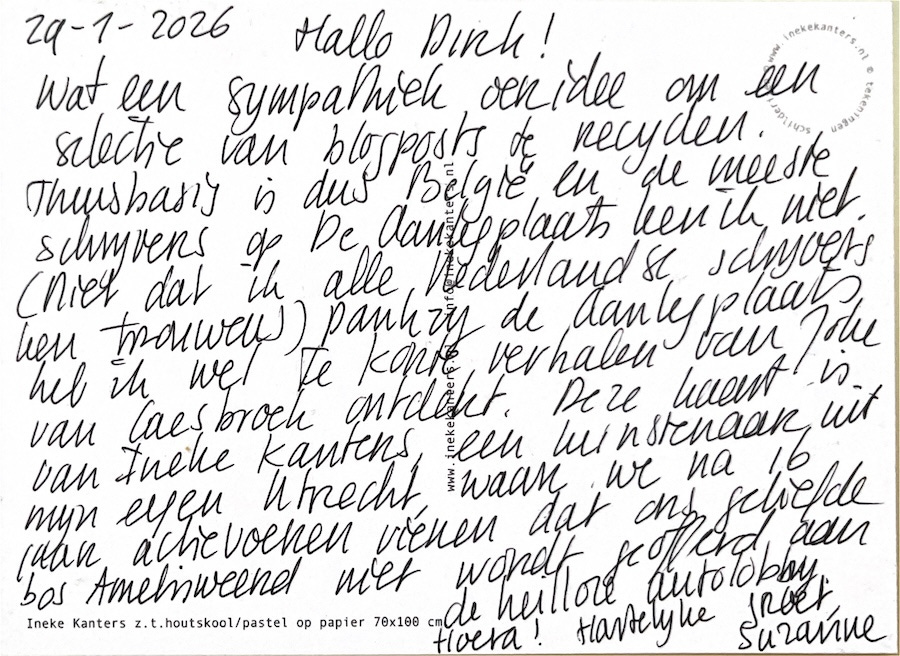 29-1-2026 Hallo Dirk!
wat een sympathiek oer idee om een
selectie van blogposts te recyclen.
Thuisbasis is dus België en de meeste
schrijvers op De Aanlegplaats ken ik niet.
(Niet dat ik alle Nederlandse schrijvers
ken trouwens) Dankzij de aanlegplaats
heb ik wel Te korte verhalen van Joke
van Caesbroek ontdekt. Deze kaart is
van Ineke Kanters, een kunstenaar uit
mijn eigen Utrecht, waar we na 16
jaar actievoeren vieren dat ons geliefde
bos Amelisweerd niet wordt geofferd aan
de heilloze autolobby.
Hoera! Hartelijke groet,
Suzanne
Ineke Kanters z.t.houtskool/pastel op papier 70x100 cm
www.inekekanters.nl info@inekekanters.nl
www.inekekanters.nl © tekeningen